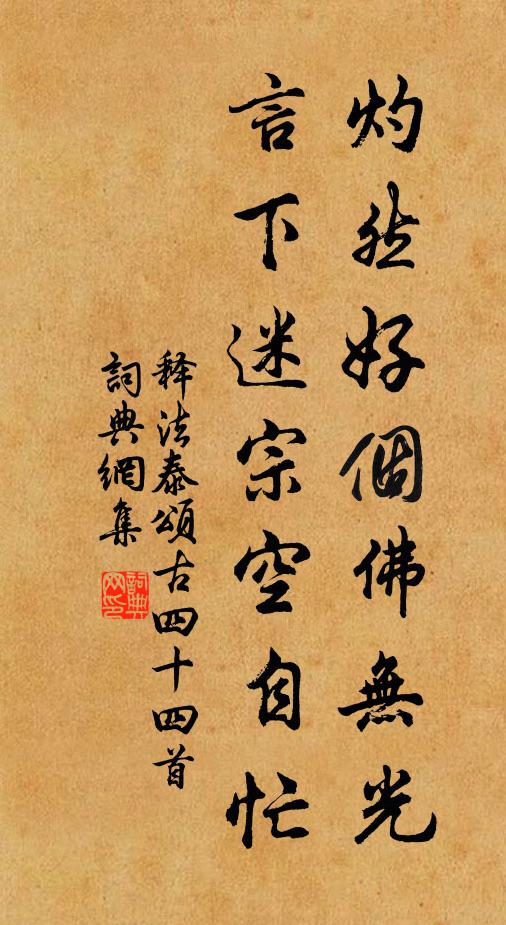 灼然好個佛無光
言下迷宗空自忙
释法泰頌古四十四首
詞典網集
詞典网印